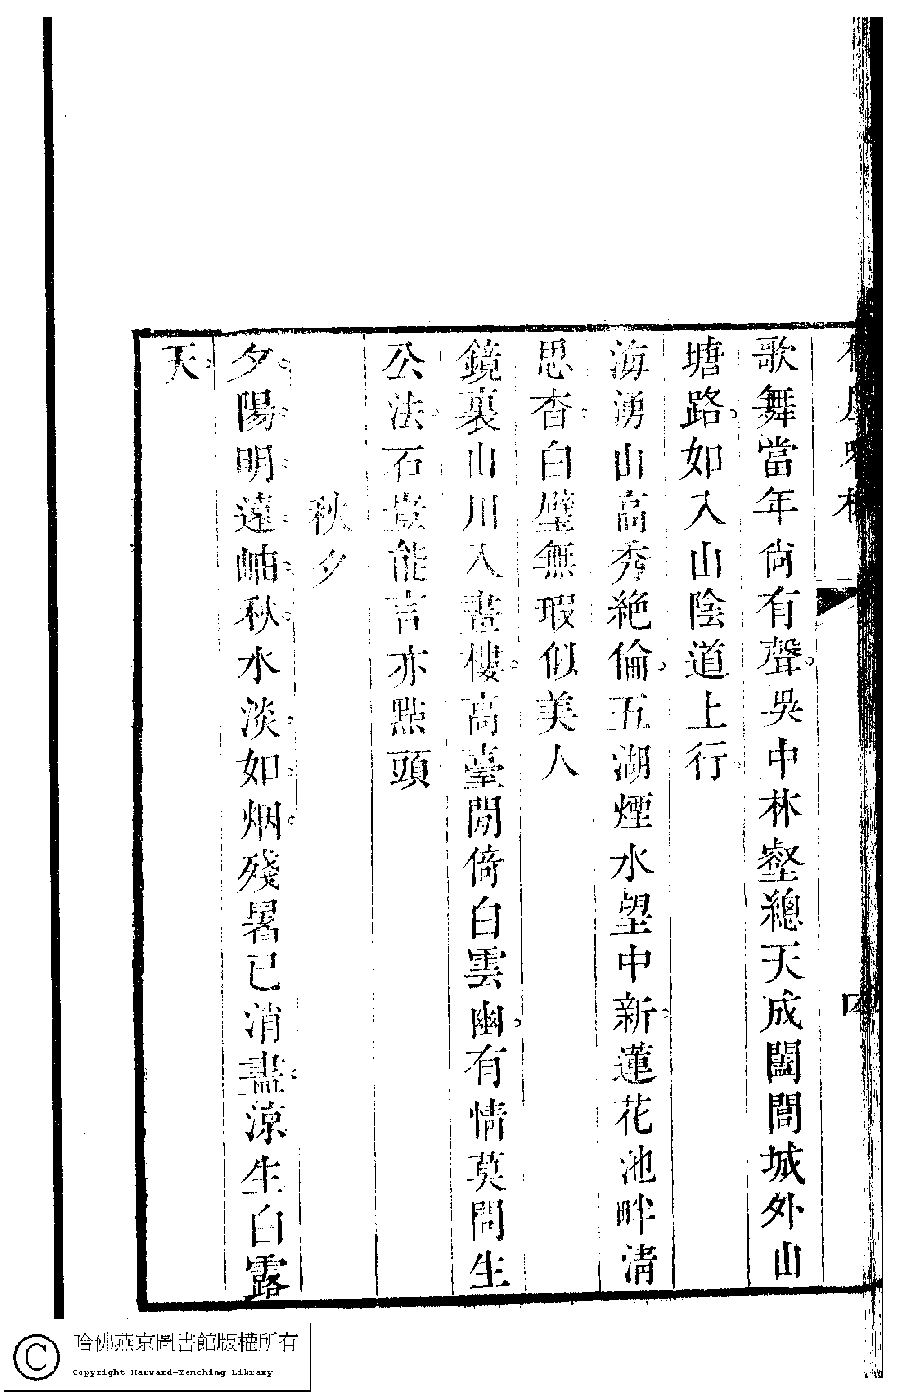 歌舞當年尙有聲吳中林壑總天成闔閭城外山
塘路如入山陰道上行
海湧山高秀絶倫五湖煙水望中新蓮花池畔淸
思杳白璧無瑕似美人
鏡裏山川入畫樓高臺閒倚白雲幽有情莫問生
公法石豈能言亦點頭
秋夕
夕陽明遠岫秋水淡如烟殘暑已消盡涼生白露
天
哈佛燕京圖書館版權所有
Copyright Harvard-Yenching Library